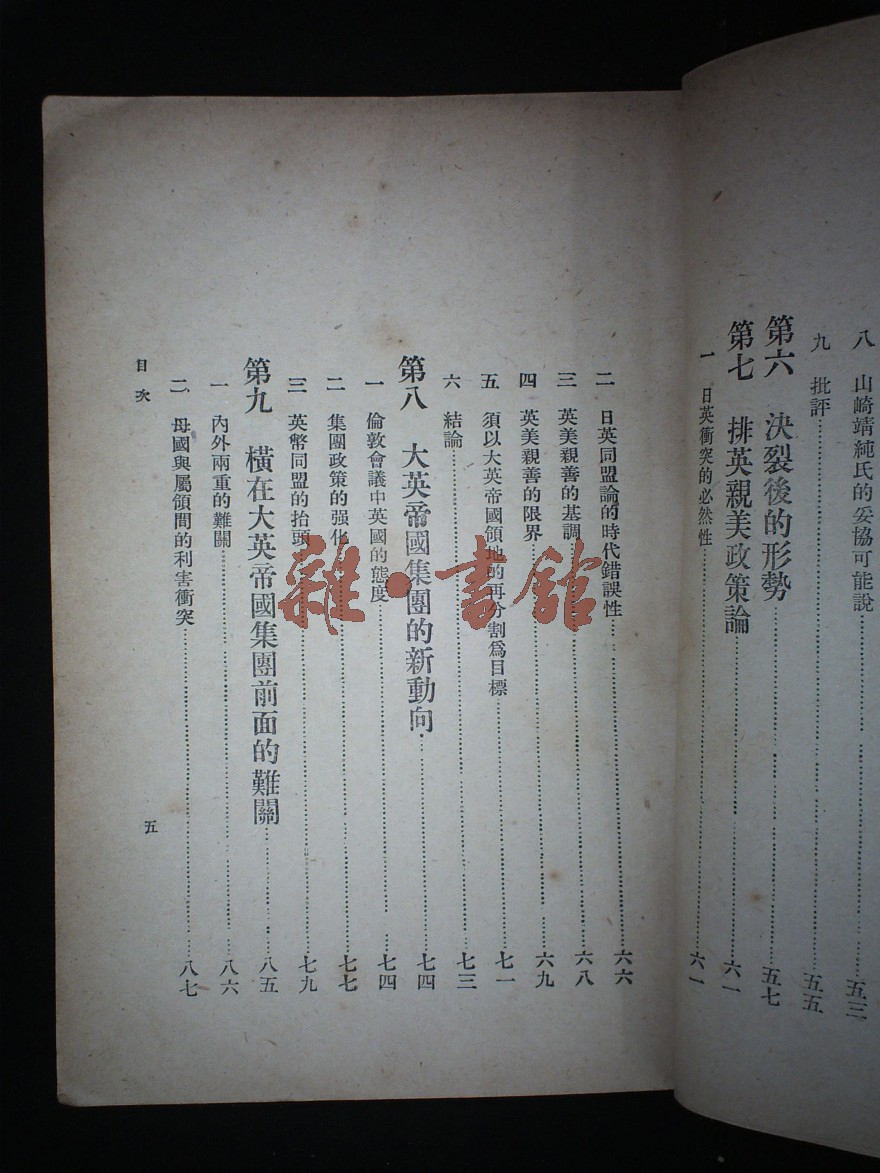 八 山崎靖純氏的妥協可能說……五三
九 批評……五五
第六 決裂後的形勢……五七
第七 排英親美政策論……六一
一 日英衝突的必然性……六一
二 日英同盟論的時代錯誤性……六六
三 英美親善的基調……六八
四 英美親善的限界……六九
五 須以大英帝國領地的再分割爲目標……七一
六 結論……七三
第八 大英帝國集團的新動向……七四
一 倫敦會議中英國的態度……七四
二 集團政策的强化……七七
三 英幣同盟的抬頭……七九
第九 橫在大英帝國集團前面的難關……八五
一 內外兩重的難關……八六
二 母國與屬領間的利害衝突……八七
目次
五
雜·書館